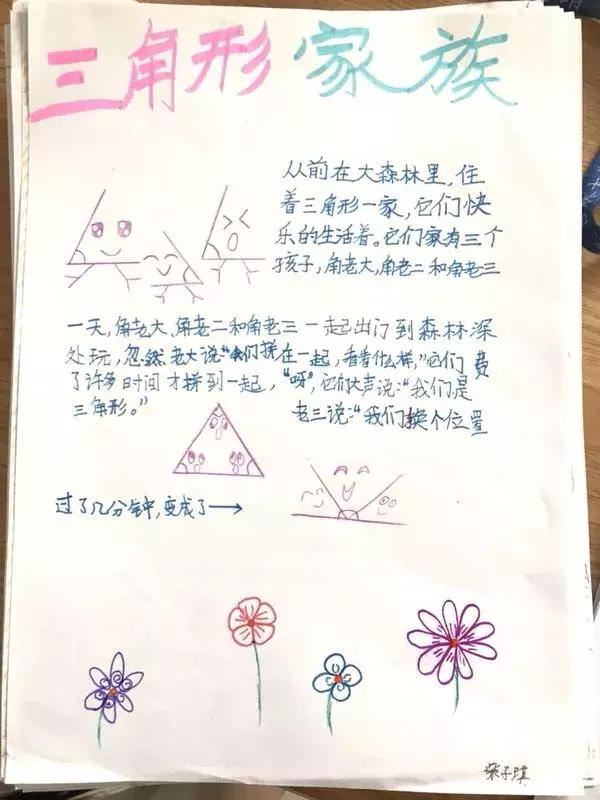 三角形家族
从前在大森林里，住
着三角形一家，它们快
乐的生活着。它们家有三个
孩子，角老大，角老二和角老三
一天，角老大、角老二和角老三一起出门到森林深
处玩，忽然老大说:“我们拼在一起，看看什么样，”它们费
了许多时间才拼到一起，“呀”，它们大声说:“我们是
三角形。”
老三说:“我们换个位置
过了几分钟，变成了→
子琪